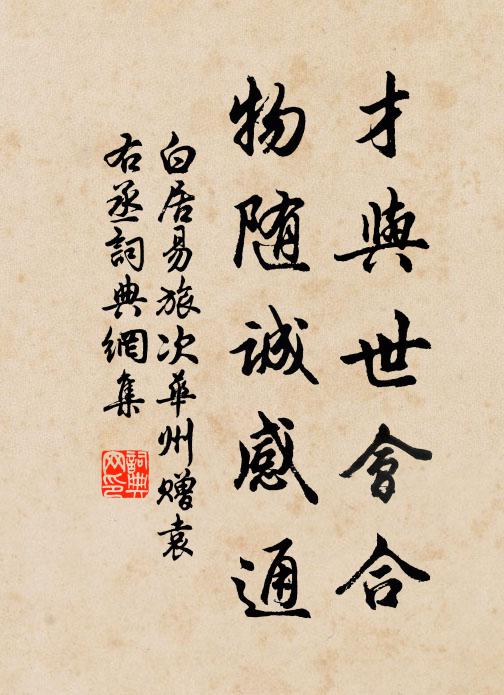 才與世會合
物随誠感通
白居易旅次華州贈袁
右丞詞典網集
詞典
网印